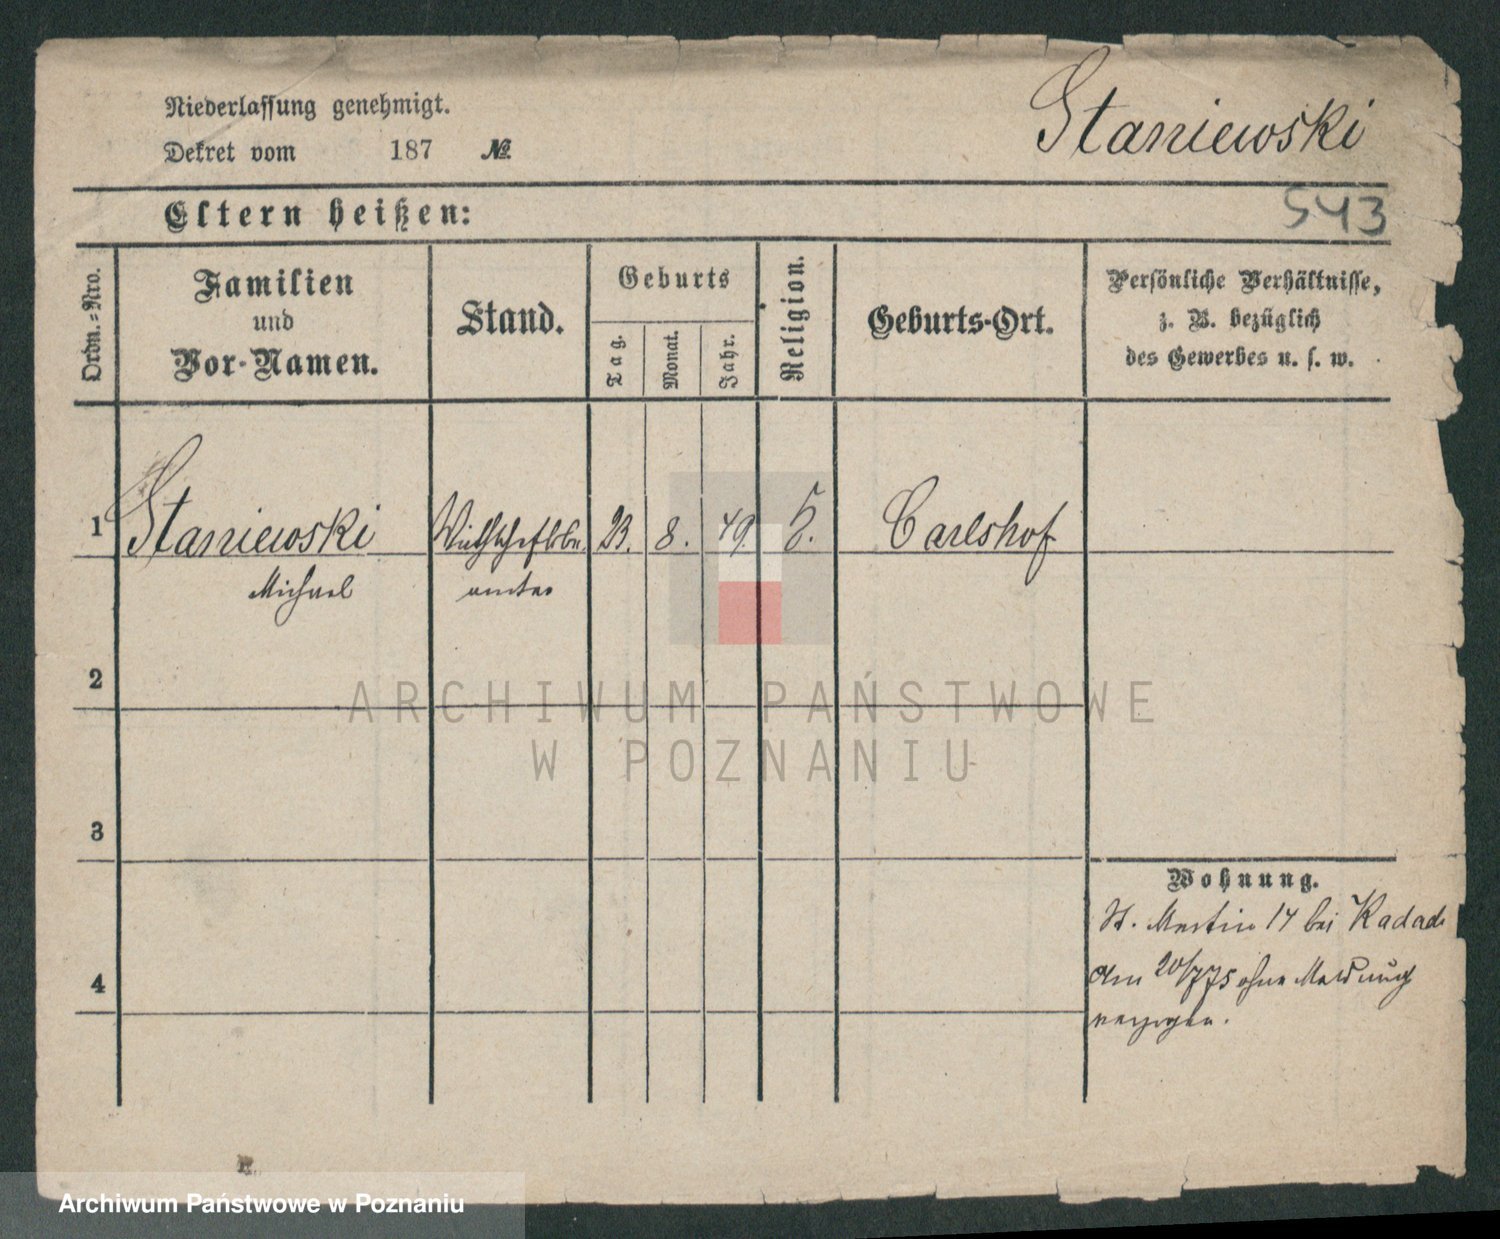 Niederlassung genehmigt.
Staniewski
Dekret vom 187 №
Eltern heißen:
543
Ordn.-Nro.
Familien
und
Vor-Namen.
Stand.
Geburts
Tag.
Monat.
Jahr.
Religion.
Geburts-Ort.
Persönliche Verhältnisse,
z. B. bezüglich
des Gewerbes u. s. w.
1 Staniewski Wirthschaftsbe 23. 8. 49. Carlshof
Michael amter
2
ARCHIWUM PAŃSTWOWE
W POZNANIU
3
Wohnung.
St. Martin 14 bei Kadad
Am 20/7 75 ohne Meldung
verzogen.
4
Archiwum Państwowe w Poznaniu